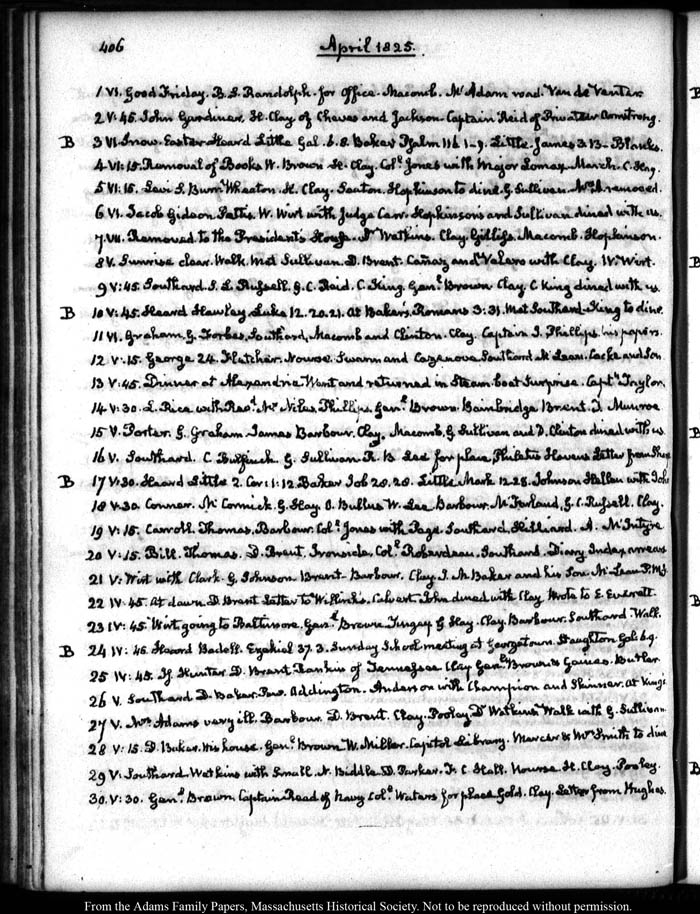 406
April 1825.
1 VI. Good Friday. B. L. Randolph. for Office. Macomb. Mc Adam road. Van de Venter
2 V:45. John Gardiner. H. Clay of Cheves and Jackson. Captain Reid of Privateer Armstrong.
B 3 VI. Snow. Easter. Heard Little Gal. 6. 8. Baker Psalm 116 1-9. Little. James 3.13. Blanks.
4 VI:15. Removal of Books. W. Brown H. Clay. Colˡ Jones with Major Lomax. March. C. Hay.
5 VI:15. Wheaton. H. Clay. Seaton. Hopkinson to dine. G. Sullivan. Mrs A removed.
6 VI. Jacob Gideon. Pettis. W. Wirt with Judge Carr. Hopkinsons and Sullivan dined with us.
7 VII. Removed to the President's House. Dr Watkins. Clay. Gillis. Macomb. Hopkinson.
8 V. Sunrise clear. Walk. Met Sullivan. D. Brent. Cañaz and Valero with Clay. W. Wirt.
9 V:45. Southard. S. L. Russell. J. C. Reid. C. King. Genˡ Brown. Clay. C King dined with us.
B 10 V:45. Heard Hawley. Luke 12. 20. 21. At Baker's. Romans 3:31. Met Southard. King to dine.
11 VI. Graham. G. Forbes. Southard, Macomb and Clinton. Clay. Captain I. Phillips, his papers.
12 V:15. George 24. Fletcher. Nourse. Swann and Cazenove. Southard. Mc Lean. Locke and Son
13 V:45. Dinner at Alexandria. Went and returned in Steam boat Surprise. Captn Taylor.
14 V:30. L. Rice with Revd Mr Niles. Phillips. Genˡ Brown. Bainbridge. Brent. J. Munroe
15 V. Porter. G. Graham. James Barbour. Clay. Macomb, G Sullivan and D. Clinton dined with us
16 V. Southard. C Bulfinch. G. Sullivan. R. B. Lee for place. Letter from
B 17 V:30. Heard Little 2. Cor: 1:12. Baker Job 28. 28. Little. Mark 12 28. Johnson Hellen with John
18 V:30. Conner. Mc Cormick. G. Hay. O. Bullus. W. Lee. Barbour. Mc Farland, J. C. Russell. Clay.
19 V:15. Carroll. Thomas. Barbour. Colˡ Jones with Page. Southard. Hilliard. A. McIntyre
20 V:15. Bill. Thomas. D. Brent. Ironside. Colˡ Roberdeau. Southard. Diary Index arrears
21 V. Wirt with Clark. G. Johnson. Brent. Barbour. Clay. J. M. Baker and his Son. Mc Lean
22 IV:45. At dawn. D. Brent. Letter to Willinks. Calvert. John dined with Clay. Wrote to E. Everett.
23 IV:45. Wirt going to Baltimore. Genˡ Brown. G Hay. Clay. Barbour. Southard. Walk.
B 24 IV:45. Heard Bedell. Ezekiel 37. 3. Sunday School meeting at Georgetown. Staughton Gal: 6.9.
25 IV:45. Hunter. D. Brent. Rankin of Tennessee. Clay. Genˡ Brown & Gaines. Butler.
26 V. Southard. D. Baker. Addington. Anderson with Champion and Skinner, at King's
27 V. Mrs Adams very ill. Barbour. D. Brent. Clay. Pooley. Dr Watkins. Walk with G. Sullivan.
28 V:15. D. Baker. His house. Genˡ Brown. W. Miller. Capitol Library. Mercer & Wm Smith to dine
29 V. Southard. Watkins with Small. N. Biddle. D. Parker. F. C. Hall. Nourse. H. Clay. Pooley.
30. V:30. Genˡ Brown. Captain Read of Navy. Colˡ Waters for place. Gold. Clay. Letter from Hughes.
From the Adams Family Papers, Massachusetts Historical Society. Not to be reproduced without permission.